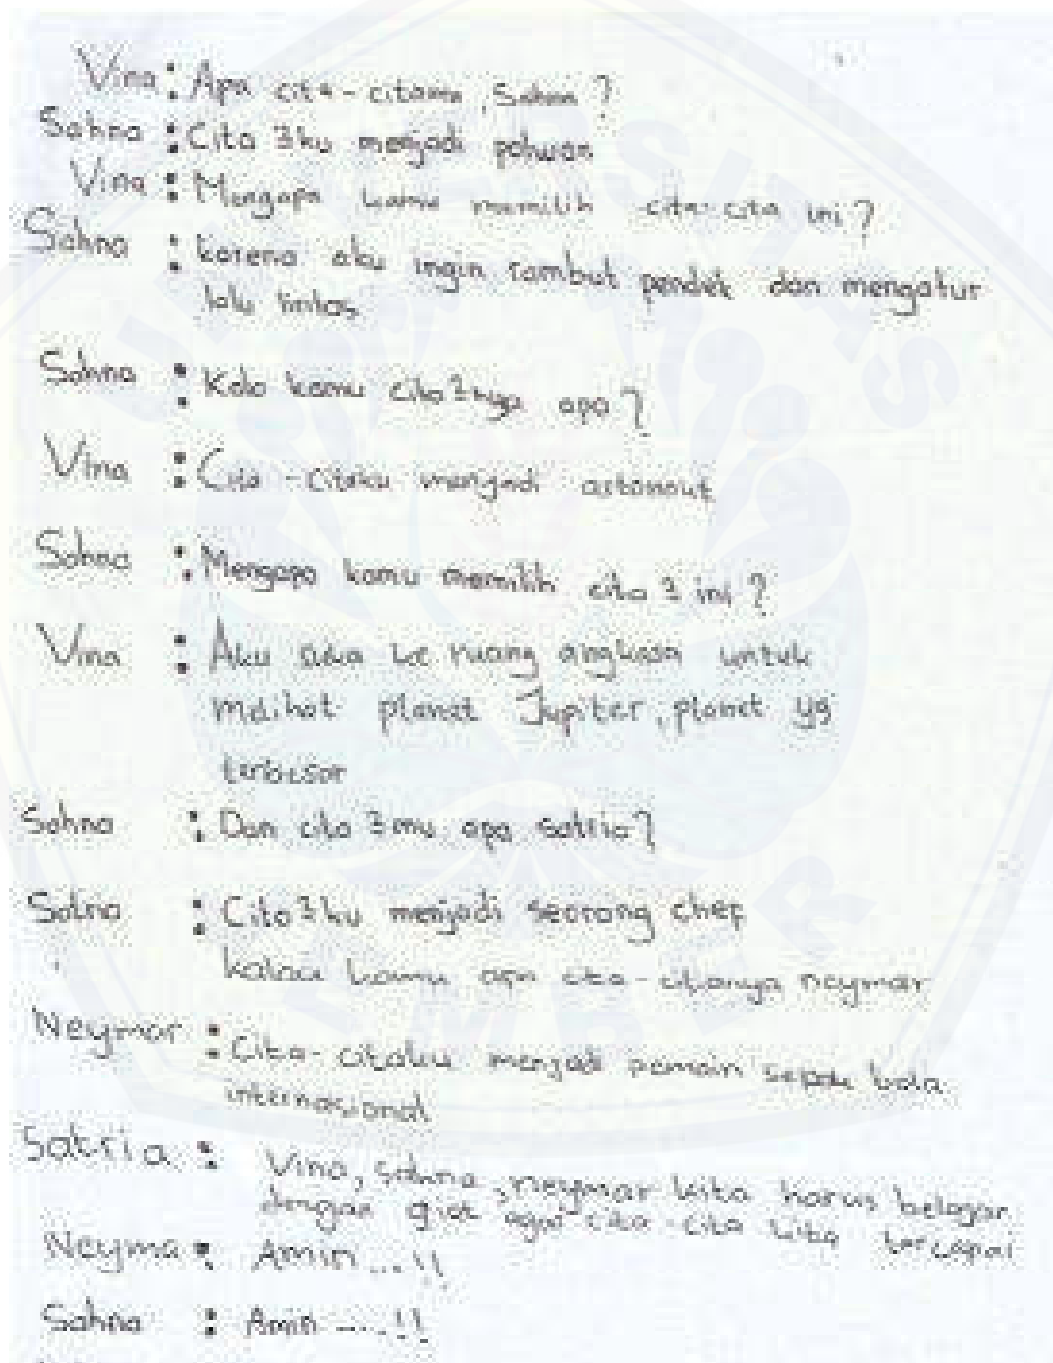 Vina : Apa cita-citamu, Sahna ?
Sahna : Cita 2ku menjadi polwan
Vina : Mengapa kamu memilih cita-cita ini ?
Sahna : karena aku ingin rambut pendek dan mengatur
lalu lintas
Sahna : Kalo kamu cita 2nya apa ?
Vina : Cita-citaku menjadi astonout
Sahna : Mengapa kamu memilih cita 2 ini ?
Vina : Aku suka ke ruang angkasa untuk
melihat planet Jupiter, planet yg
terbesar
Sahna : Dan cita 2mu apa satria ?
Satria : Cita 2ku menjadi seorang chef
kalau kamu apa cita-citanya neymar
Neymar : Cita-citaku menjadi pemain sepak bola
internasional
Satria : Vina, sahna, neymar kita harus belajar
dengan giat agar cita-cita kita tercapai
Neyma : Amin ...!!
Sahna : Amin ....!!
UNIVERSITAS
JEMBER